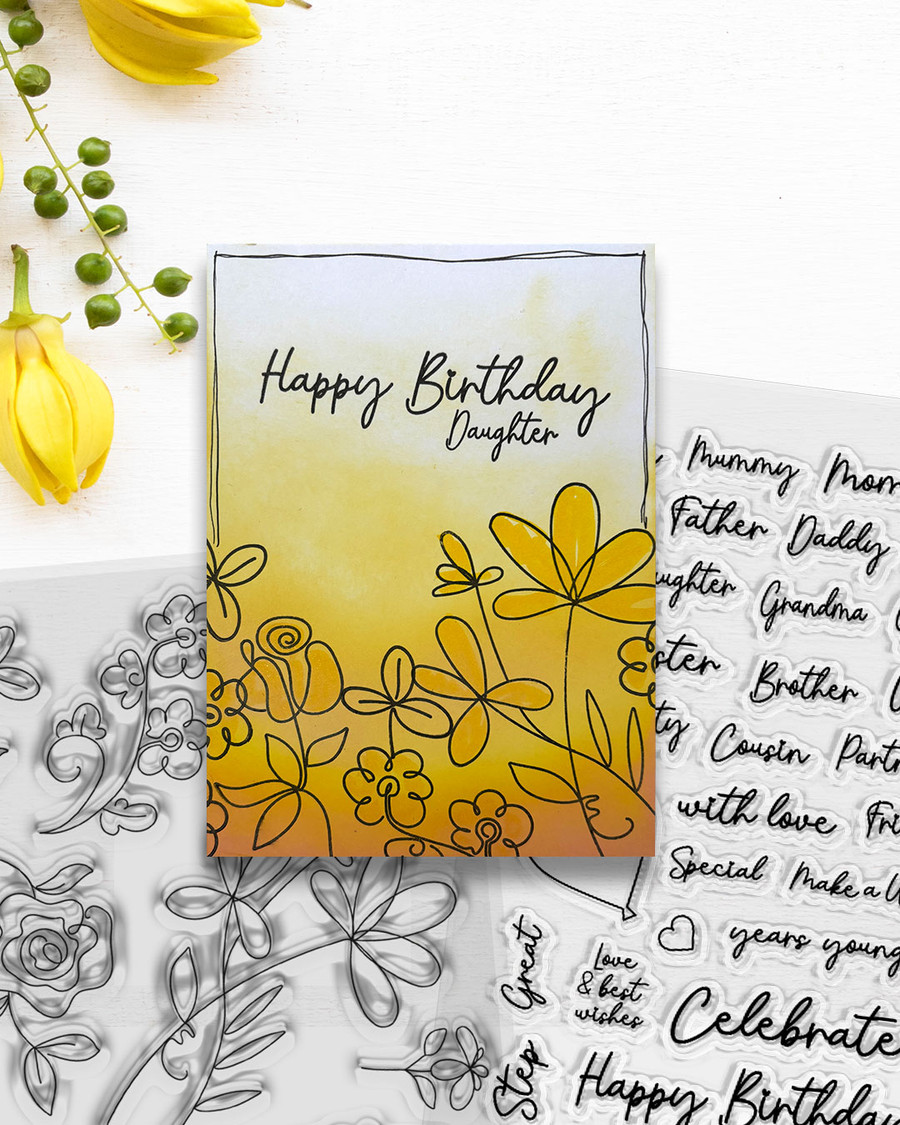 Happy Birthday
Daughter
Mummy Mom
Father Daddy
Grandma
Brother
Cousin
with love
Special Make a
years young
Great
Love
& best
wishes
Celebrate
Step
Happy Birthday